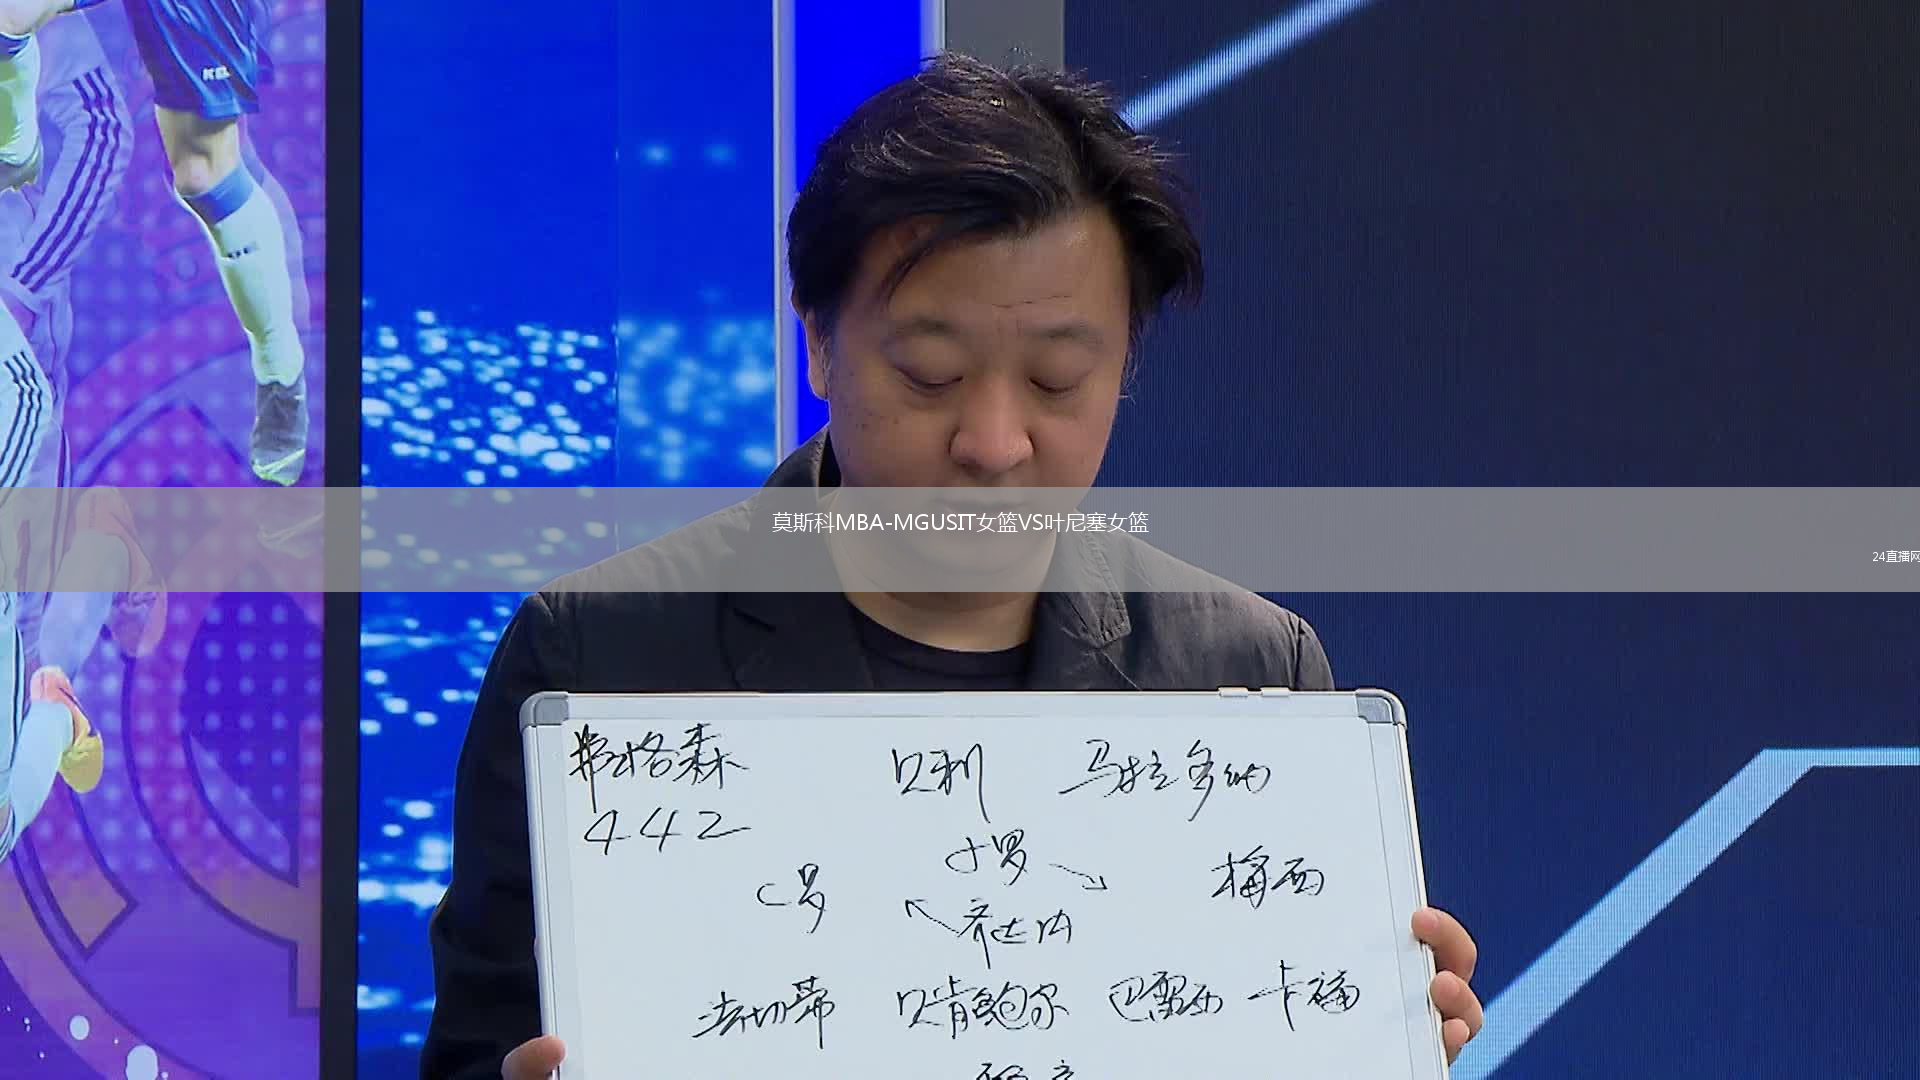 KEL
莫斯科MBA-MGUSIT女篮VS叶尼塞女篮
24直播网
弗格森 贝利 马拉多纳
442
小罗
C罗 梅西
齐达内
法切蒂 贝肯鲍尔 巴雷西 卡福